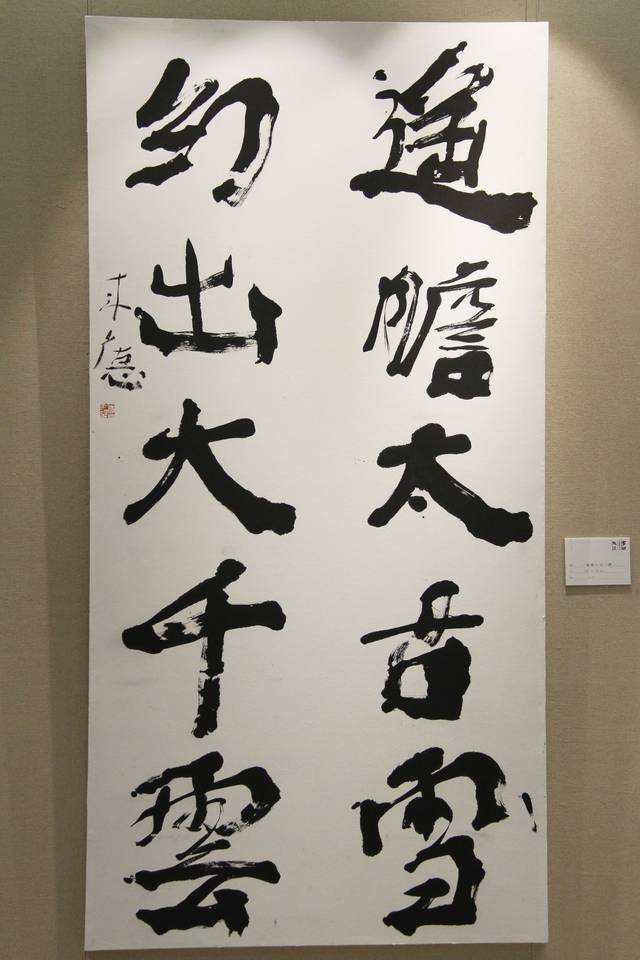 遥瞻太古雪
幻出大千雲
来德